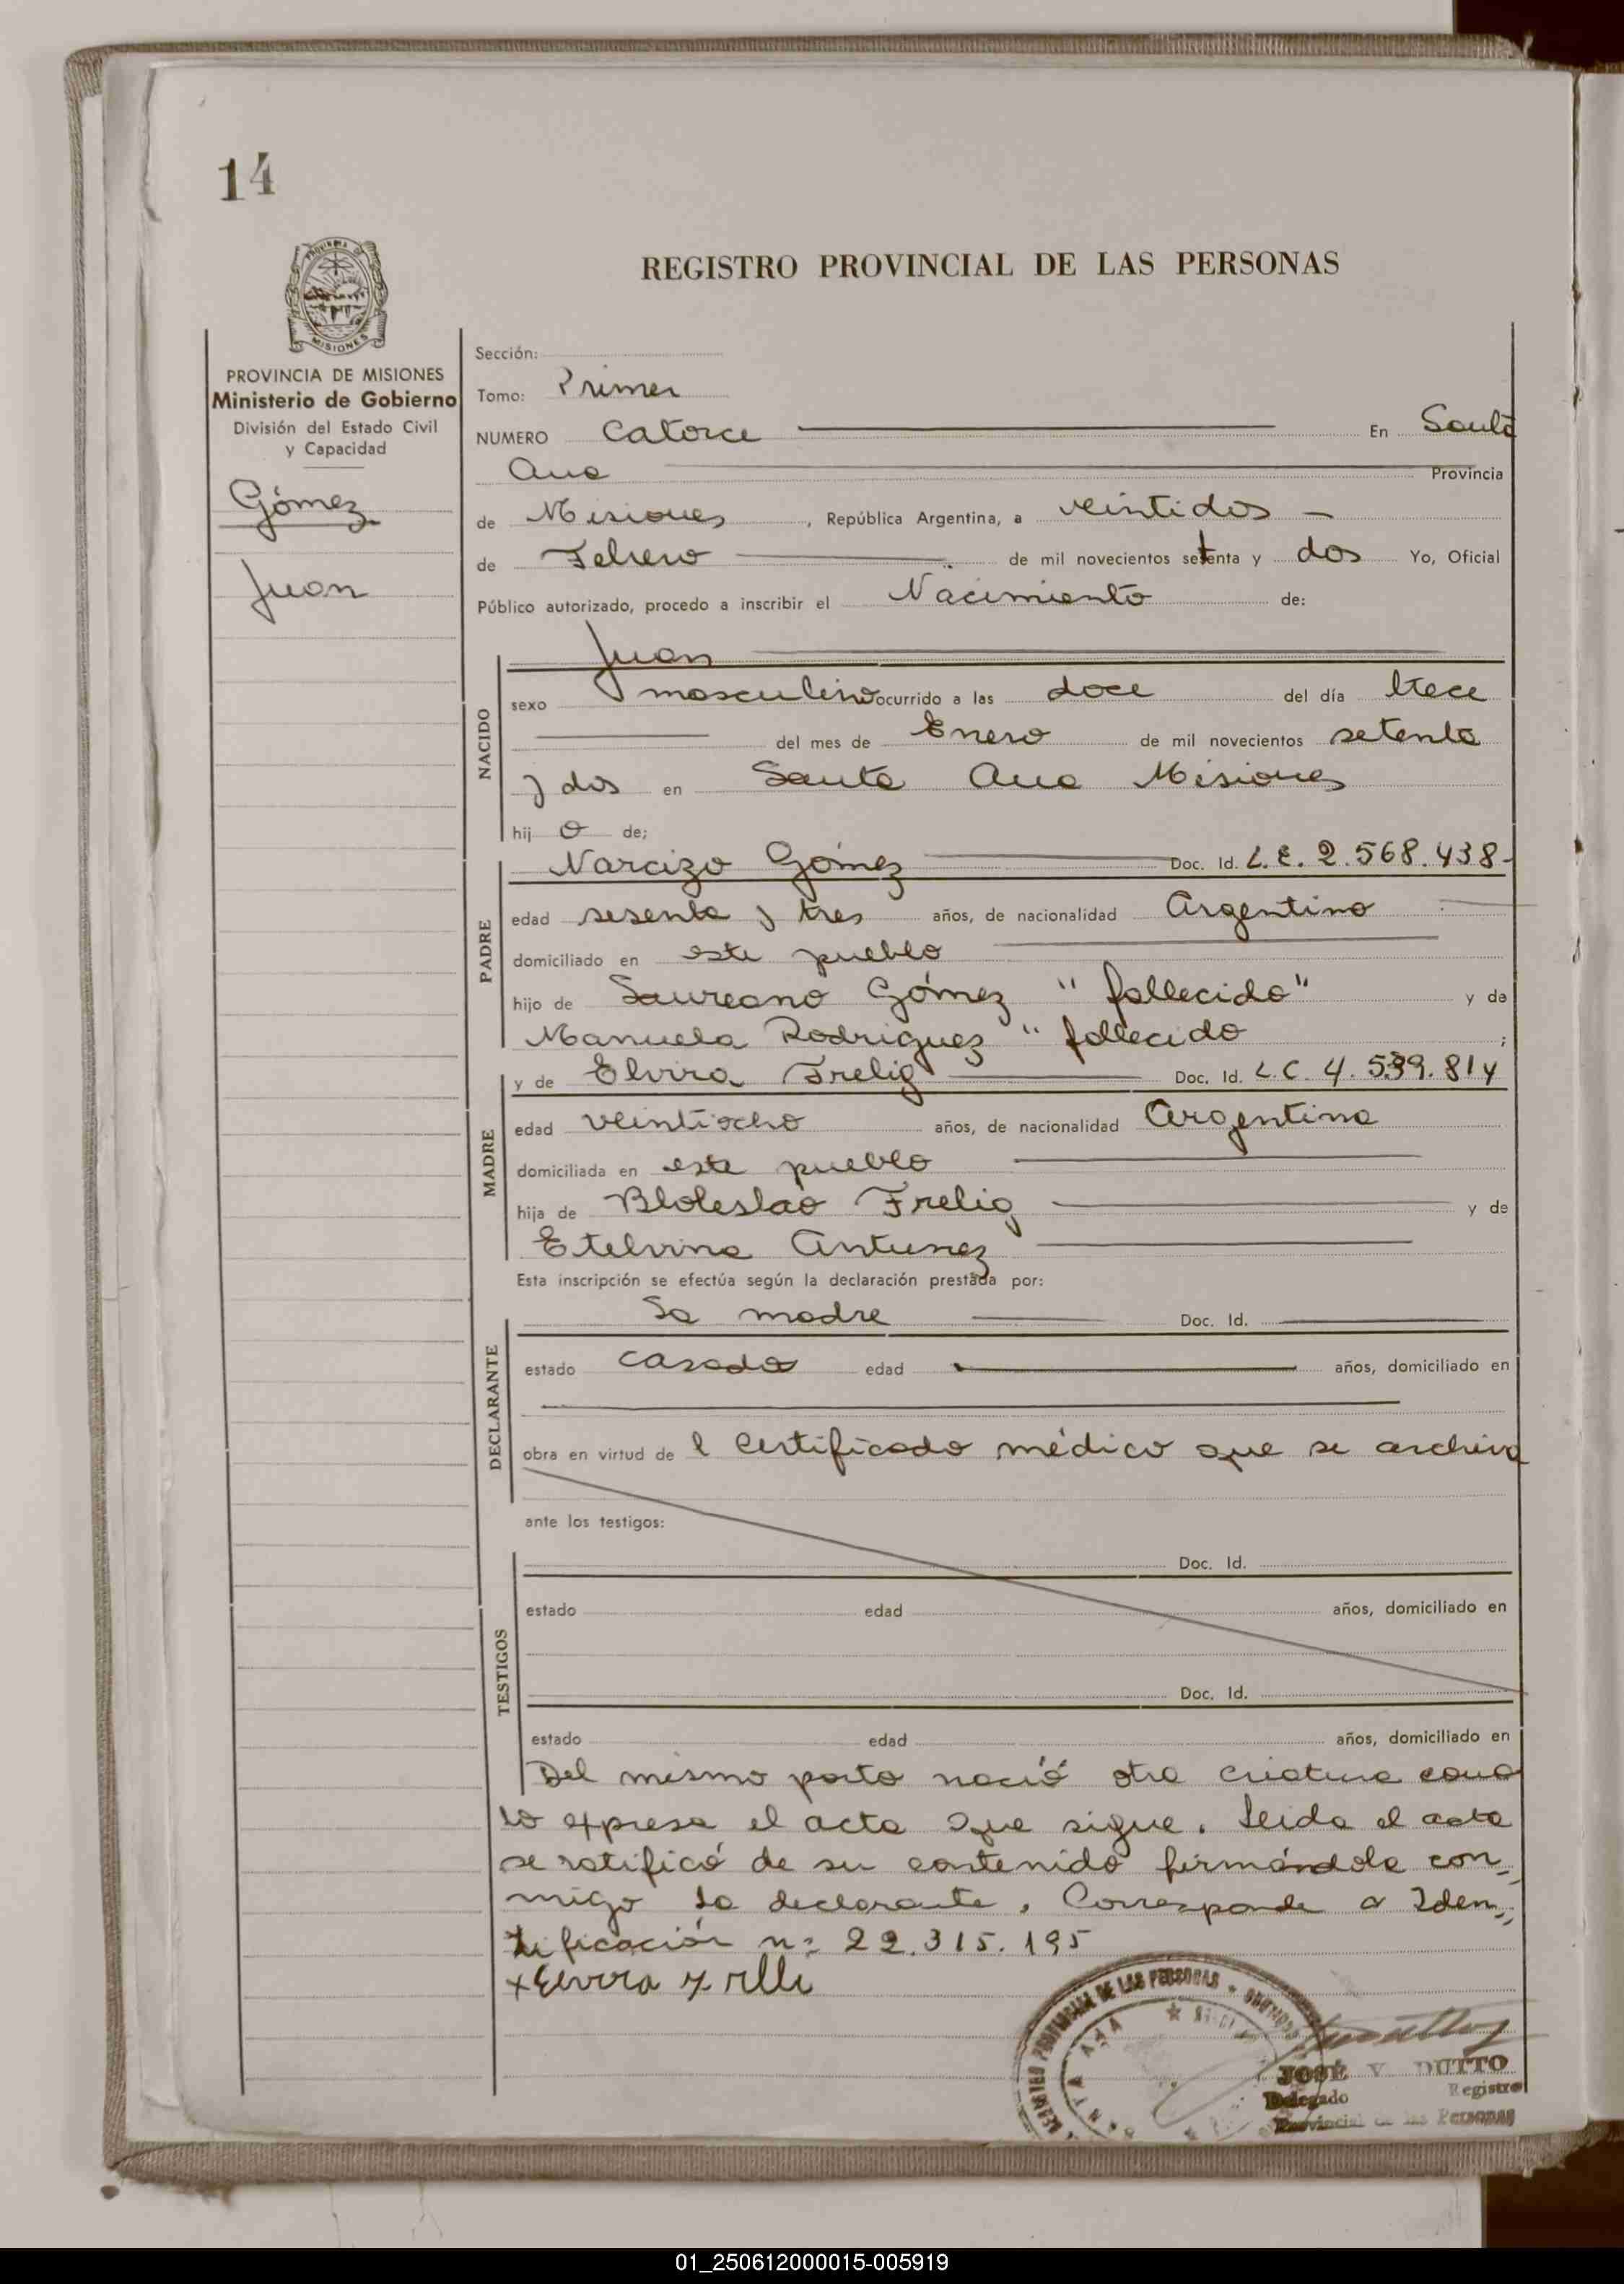 14
REGISTRO PROVINCIAL DE LAS PERSONAS
MISIONES
PROVINCIA DE MISIONES
Ministerio de Gobierno
División del Estado Civil
y Capacidad
Gómez
Juan
Sección:
Tomo: Primer
NUMERO Catorce En Santa
Ana Provincia
de Misiones, República Argentina, a veintidos
de Febrero de mil novecientos setenta y dos Yo, Oficial
Público autorizado, procedo a inscribir el Nacimiento de:
Juan
NACIDO
sexo masculino ocurrido a las doce del día trece
del mes de Enero de mil novecientos setenta
y dos en Santa Ana Misiones
hij o de;
PADRE
Narcizo Gómez Doc. Id. L.E. 2.568.438-
edad sesenta y tres años, de nacionalidad Argentino
domiciliado en este pueblo
hijo de Laureano Gómez "fallecido" y de
Manuela Rodriguez "fallecido ;
MADRE
y de Elvira Frelig Doc. Id. L.C. 4.539.814
edad veintiocho años, de nacionalidad Argentina
domiciliada en este pueblo
hija de Bloleslao Frelig y de
Etelvina Antunez
Esta inscripción se efectúa según la declaración prestada por:
DECLARANTE
La madre Doc. Id.
estado casada edad años, domiciliado en
obra en virtud de l certificado médico que se archiva
ante los testigos:
TESTIGOS
Doc. Id.
estado edad años, domiciliado en
Doc. Id.
estado edad años, domiciliado en
Del mismo parto nació otra criatura como
lo expresa el acta que sigue. Leida el acta
se ratificó de su contenido firmándola con-
migo la declarante. Corresponde a Iden-
tificación nº 22.315.195
x Elvira
REGISTRO PROVINCIAL DE LAS PERSONAS
SANTA ANA
JOSÉ V. DUTTO
Delegado Registro
Provincial de las Personas
01_250612000015-005919